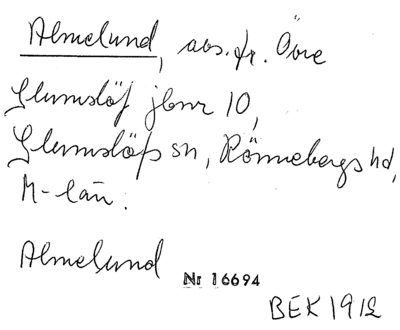 Almelund, avs. fr. Övre
Glumslöf jbnr 10,
Glumslöfs sn, Rönnebergs hd,
M-län.
Almelund
Nr 16694
BEK 1912